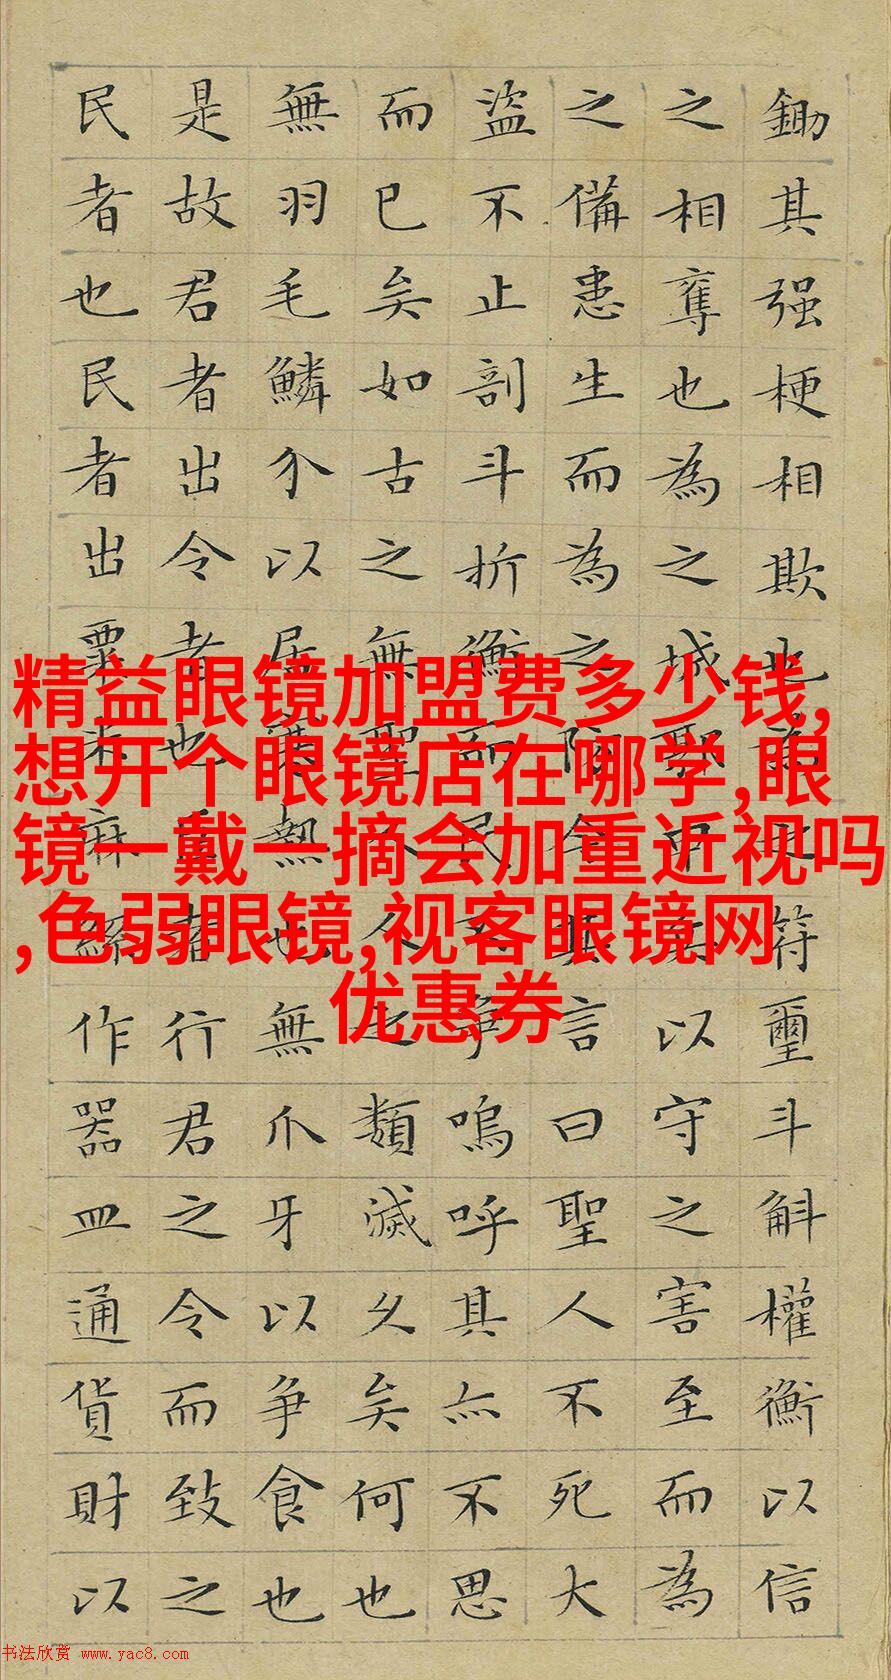 鋤其强梗相欺也為之符璽斗斛權衡以信
之相奪也為之城郭甲兵以守之害至而為
之備患生而為之防今其言曰聖人不死大
盜不止剖斗折衡而民不争嗚呼其亦不思
而已矣如古之無聖人人之類滅久矣何也
無羽毛鱗介以居寒熱也無爪牙以争食也
是故君者出令者也臣者行君之令而致之
民者也民者出粟米麻絲作器皿通貨財以
精益眼镜加盟费多少钱,
想开个眼镜店在哪学,眼
镜一戴一摘会加重近视吗
,色弱眼镜,视客眼镜网
优惠券
书法欣赏 www.yac8.com